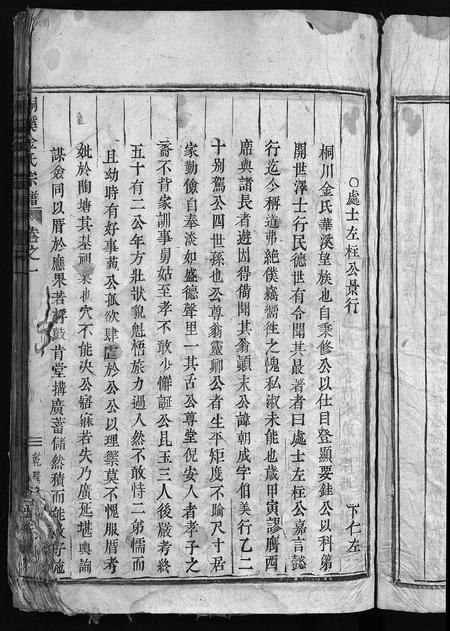 ○處士左柱公景行
下仁左
桐川金氏華溪望族也自秉修公以仕目登顯要銈公以科第
開世澤士行民德世有令聞其最著者曰處士左柱公嘉言懿
行迄今稱道弗絕僕竊嚮往之愧私淑未能也歲甲寅謬膺西
席與諸長者遊因得備聞其翁顛末公諱朝成字伯美行乙二
十別駕公四世孫也公尊翁靈卿公者生平矩度不踰尺寸居
家勤儉自奉淡如盛德聲里一其古公尊堂倪安人者孝子之
裔不背家訓事舅姑至孝不敢少懈誕公昆玉三人後嚴考終
五十有二公年方壯狀貌魁悟旅力過人然不敢恃二弟儒而
且幼時有好事藐公孤欲肆虐於公公以理禦莫不愧服厝考
妣於陶塘其基祖業也穴不能決公寤寐若失乃廣延堪輿詢
謀僉同以厝於應果若肯堂搆廣蓄儲然積而能散好施
桐溪金氏宗譜
卷之一
乾隆